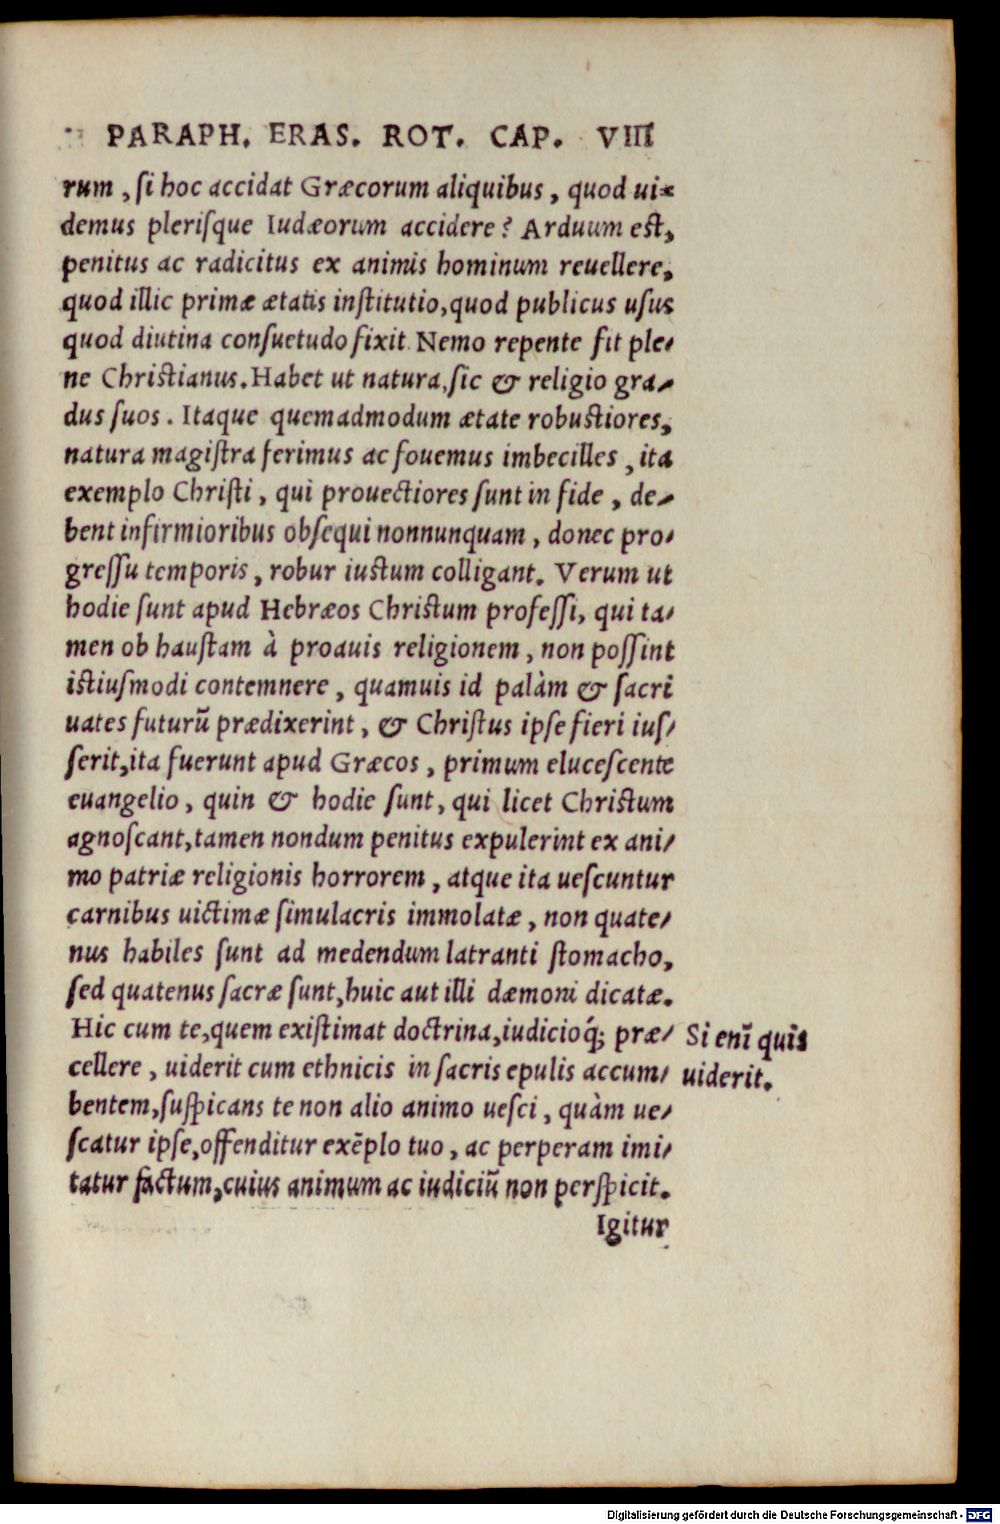 PARAPH. ERAS. ROT. CAP. VIII
rum, ſi hoc accidat Græcorum aliquibus, quod ui-
demus pleriſque Iudæorum accidere? Arduum est,
penitus ac radicitus ex animis hominum reuellere,
quod illic primæ ætatis inſtitutio, quod publicus uſus
quod diutina conſuetudo fixit. Nemo repente fit ple-
ne Christianus. Habet ut natura, ſic & religio gra-
dus ſuos. Itaque quemadmodum ætate robustiores,
natura magiſtra ferimus ac fouemus imbecilles, ita
exemplo Chriſti, qui prouectiores ſunt in fide, de-
bent infirmioribus obſequi nonnunquam, donec pro-
greſſu temporis, robur iustum colligant. Verum ut
hodie ſunt apud Hebræos Christum profeſſi, qui ta-
men ob hauſtam à proauis religionem, non poſſint
istiuſmodi contemnere, quamuis id palàm & ſacri
uates futurū prædixerint, & Chriſtus ipſe fieri iuſ-
ſerit, ita fuerunt apud Græcos, primum eluceſcente
euangelio, quin & hodie ſunt, qui licet Christum
agnoſcant, tamen nondum penitus expulerint ex ani-
mo patriæ religionis horrorem, atque ita ueſcuntur
carnibus uictimæ ſimulacris immolatæ, non quate-
nus habiles ſunt ad medendum latranti ſtomacho,
ſed quatenus ſacræ ſunt, huic aut illi dæmoni dicatæ.
Hic cum te, quem exiſtimat doctrina, iudicioq́; præ-
cellere, uiderit cum ethnicis in ſacris epulis accum-
bentem, ſuſpicans te non alio animo ueſci, quàm ue-
ſcatur ipſe, offenditur exēplo tuo, ac perperam imi-
tatur factum, cuius animum ac iudiciū non perſpicit.
Igitur
Si enī quis
uiderit.
Digitalisierung gefördert durch die Deutsche Forschungsgemeinschaft - DFG